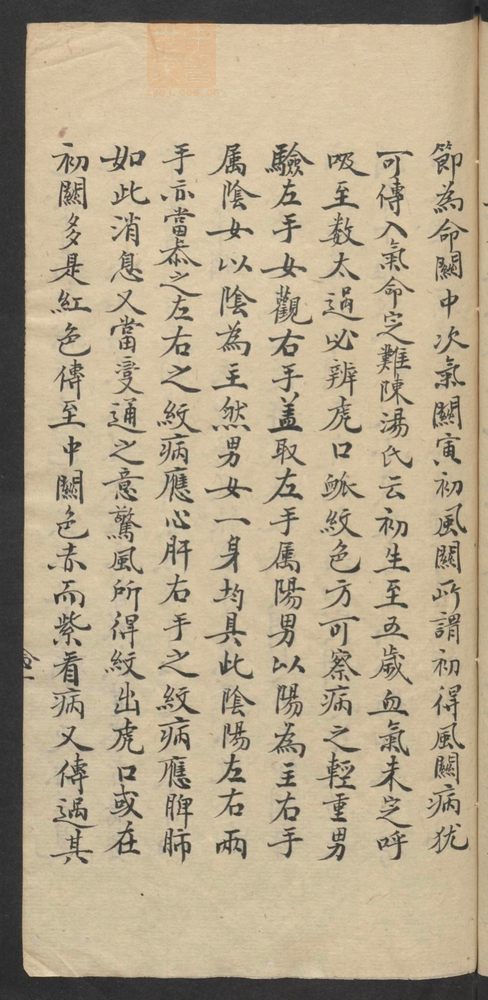 節為命關中次氣關寅初風關所謂初得風關病犹
可傳入氣命定難陳湯氏云初生至五歲血氣未定呼
吸至数太過必辨虎口脈紋色方可察病之輕重男
驗左手女觀右手盖取左手属陽男以陽為主右手
属陰女以陰為主然男女一身均具此陰陽左右兩
手亦當叅之左右之紋病應心肝右手之紋病應脾肺
如此消息又當変通之意驚風所得紋出虎口或在
初關多是紅色傳至中關色赤而紫看病又傳過其